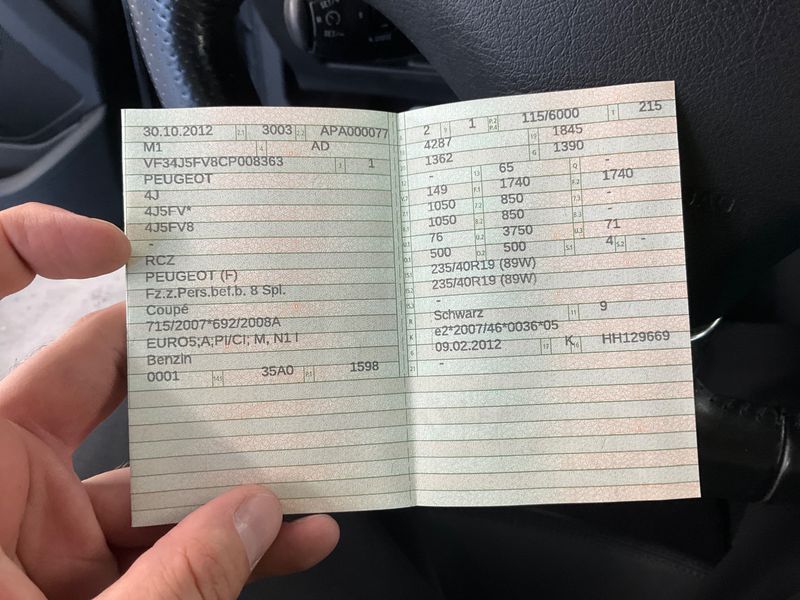 30.10.2012 2.1 3003 2.2 APA000077
M1 4 AD
VF34J5FV8CP008363 3 1
PEUGEOT
4J
4J5FV*
4J5FV8
-
RCZ
PEUGEOT (F)
Fz.z.Pers.bef.b. 8 Spl.
Coupé
715/2007*692/2008A
EURO5;A;PI/CI; M, N1 I
Benzin
0001 35A0 P.1 1598
2 9 1 P.2 P.4 115/6000 T 215
4287 19 1845
1362 G 1390
- 13 65 Q -
149 F.1 1740 F.2 1740
1050 7.2 850 7.3 -
1050 8.2 850 8.3 -
76 U.2 3750 U.3 71
500 O.2 500 S.1 4 S.2 -
235/40R19 (89W)
235/40R19 (89W)
-
Schwarz 11 9
e2*2007/46*0036*05
09.02.2012 17 K 16 HH129669
-